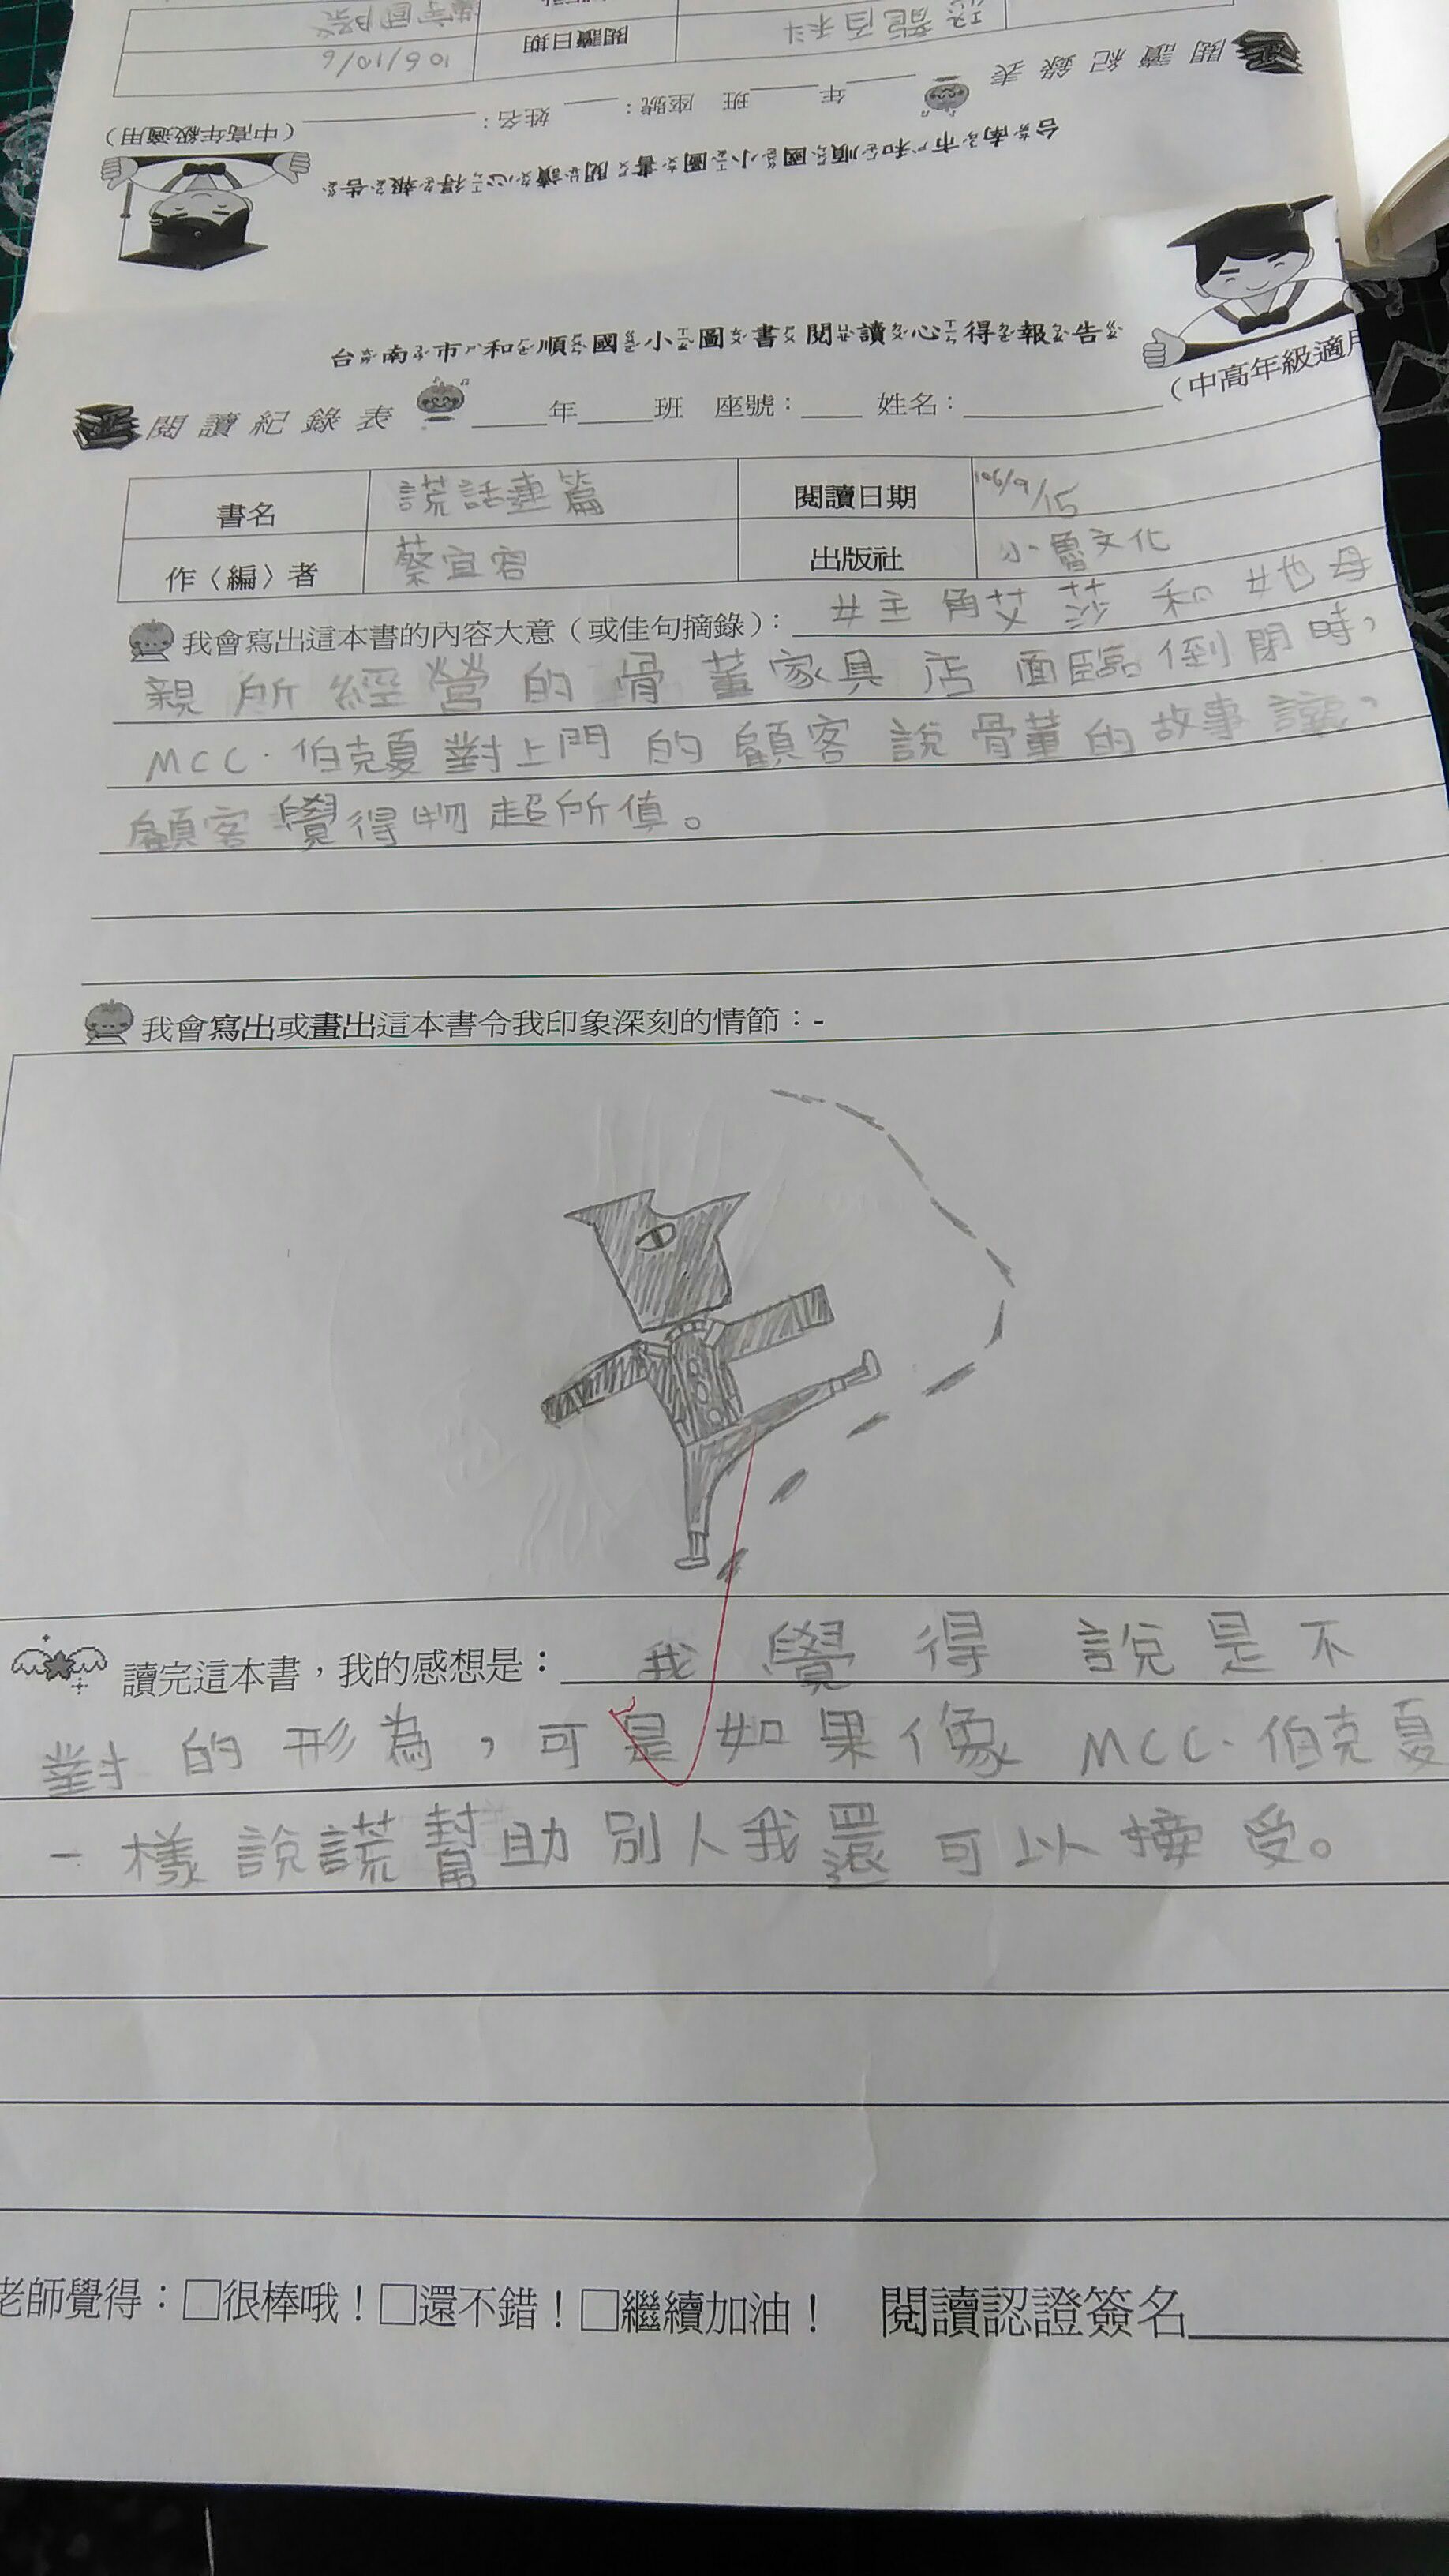 台南市和順國小圖書閱讀心得報告
(中高年級適用)
閱讀紀錄表 年 班 座號: 姓名:
閱讀日期 106/10/6
台南市和順國小圖書閱讀心得報告
(中高年級適用
閱讀紀錄表 ____年____班 座號:____ 姓名:________
書名 謊話連篇 閱讀日期 106/9/15
作〈編〉者 蔡宜容 出版社 小魯文化
我會寫出這本書的內容大意(或佳句摘錄): 女主角艾莎和她母
親所經營的骨董家具店面臨倒閉時,
MCC·伯克夏對上門的顧客說骨董的故事讓,
顧客覺得物超所值。
我會寫出或畫出這本書令我印象深刻的情節:-
讀完這本書,我的感想是: 我覺得說是不
對的形為,可是如果像MCC·伯克夏
一樣說謊幫助別人我還可以接受。
老師覺得:□很棒哦!□還不錯!□繼續加油! 閱讀認證簽名